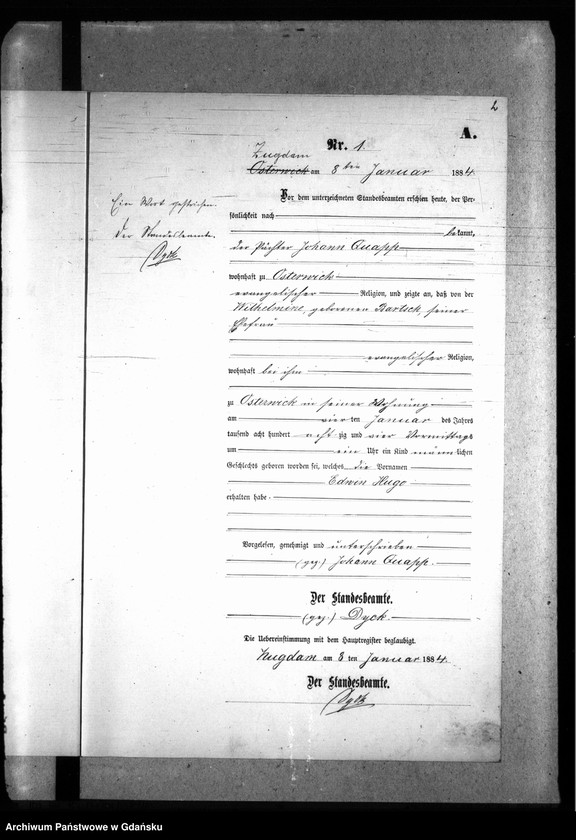 2
A.
Nr. 1.
Zugdam
Osterwick am 8ten Januar 1884.
Ein Wort gestrichen.
Der Standesbeamte.
Dyck
Vor dem unterzeichneten Standesbeamten erschien heute, der Per-
sönlichkeit nach
bekannt,
der Pächter Johann Quapp
wohnhaft zu Osterwick
evangelischer Religion, und zeigte an, daß von der
Wilhelmine, geborenen Bartsch, seiner
Ehefrau
evangelischer Religion,
wohnhaft bei ihm
zu Osterwick in seiner Wohnung
am vier ten Januar des Jahres
tausend acht hundert acht zig und vier Vormittags
um ein Uhr ein Kind männ lichen
Geschlechts geboren worden sei, welches die Vornamen
Edwin Hugo
erhalten habe.
Vorgelesen, genehmigt und unterschrieben
(gez.) Johann Quapp.
Der Standesbeamte.
(gez.) Dyck.
Die Uebereinstimmung mit dem Hauptregister beglaubigt.
Zugdam am 8 ten Januar 1884.
Der Standesbeamte.
Dyck
Archiwum Państwowe w Gdańsku